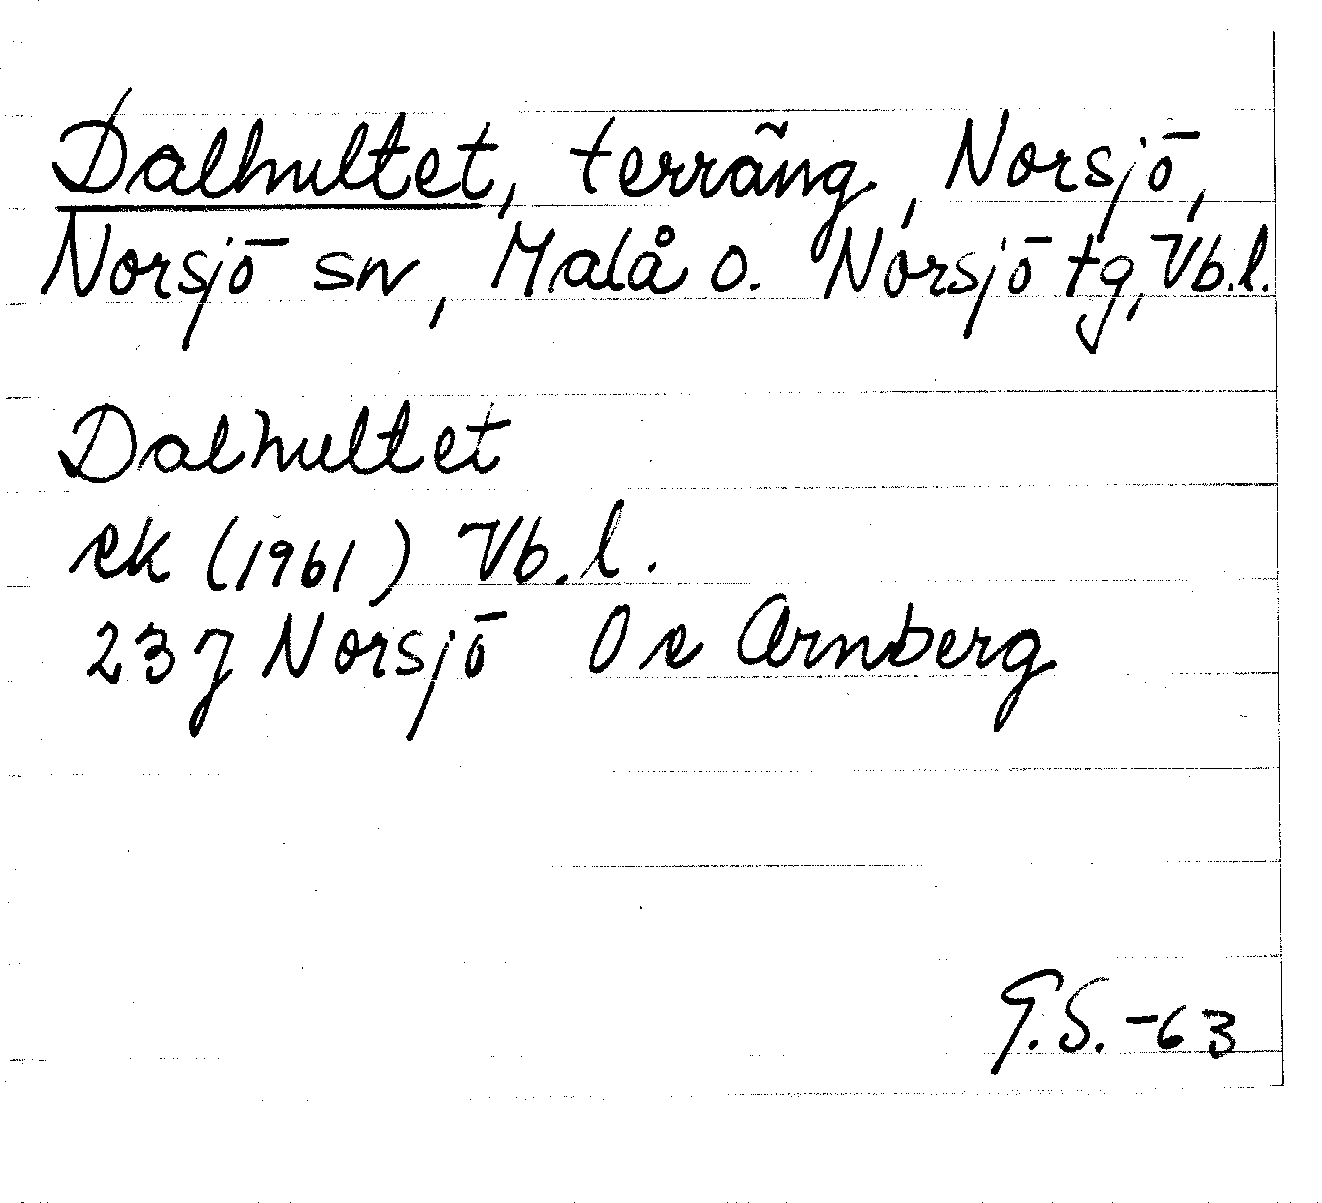 Dalhultet, terräng, Norsjö,
Norsjö sn, Malå o. Norsjö tg, Vb.l.
Dalhultet
ek (1961) Vb.l.
23J Norsjö Oe Arnberg
G.S. -63